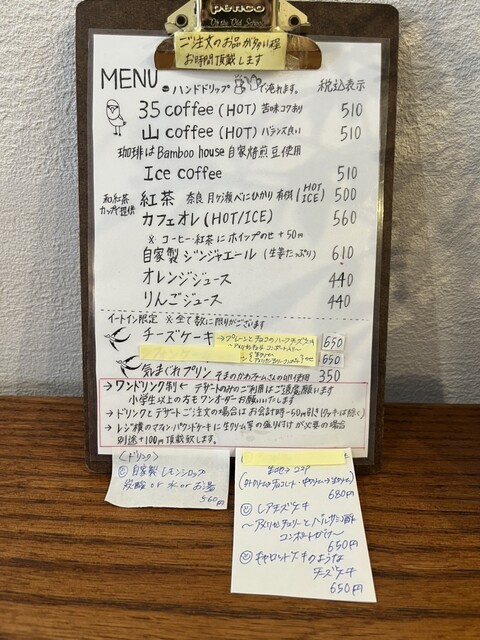 ご注文のお品が多い程
お時間頂戴します
MENU ハンドドリップ で淹れます。 税込表示
35 coffee (HOT) 苦味コクあり 510
山 coffee (HOT) バランス良い 510
珈琲は Bamboo house 自家焙煎豆使用
Ice coffee 510
和紅茶 カップで提供 紅茶 奈良 月ヶ瀬 べにひかり 有機 (HOT ICE) 500
カフェオレ (HOT/ICE) 560
※ コーヒー・紅茶に ホイップのせ +50円
自家製 ジンジャエール (生姜たっぷり) 610
オレンジジュース 440
りんごジュース 440
イートイン限定 ※ 全て数に限りがございます
チーズケーキ 650
650
気まぐれプリン 使用 350
→ ワンドリンク制 ← デザートのみのご利用はご遠慮願います
小学生以上の方もワンオーダーお願いいたします
→ ドリンクとデザートご注文の場合はお会計時-50円引き
→ レジ横のマフィン・パウンドケーキに生クリーム等の盛り付けが必要の場合
別途+100円頂戴致します。
〈ドリンク〉
自家製 レモンシロップ
炭酸 or 水 or お湯
560円
生地→ココア
680円
レアチーズケーキ
〜アメリカンチェリーとバルサミコ酢
コンポートがけ〜
650円
キャロットケーキのような
チーズケーキ
650円